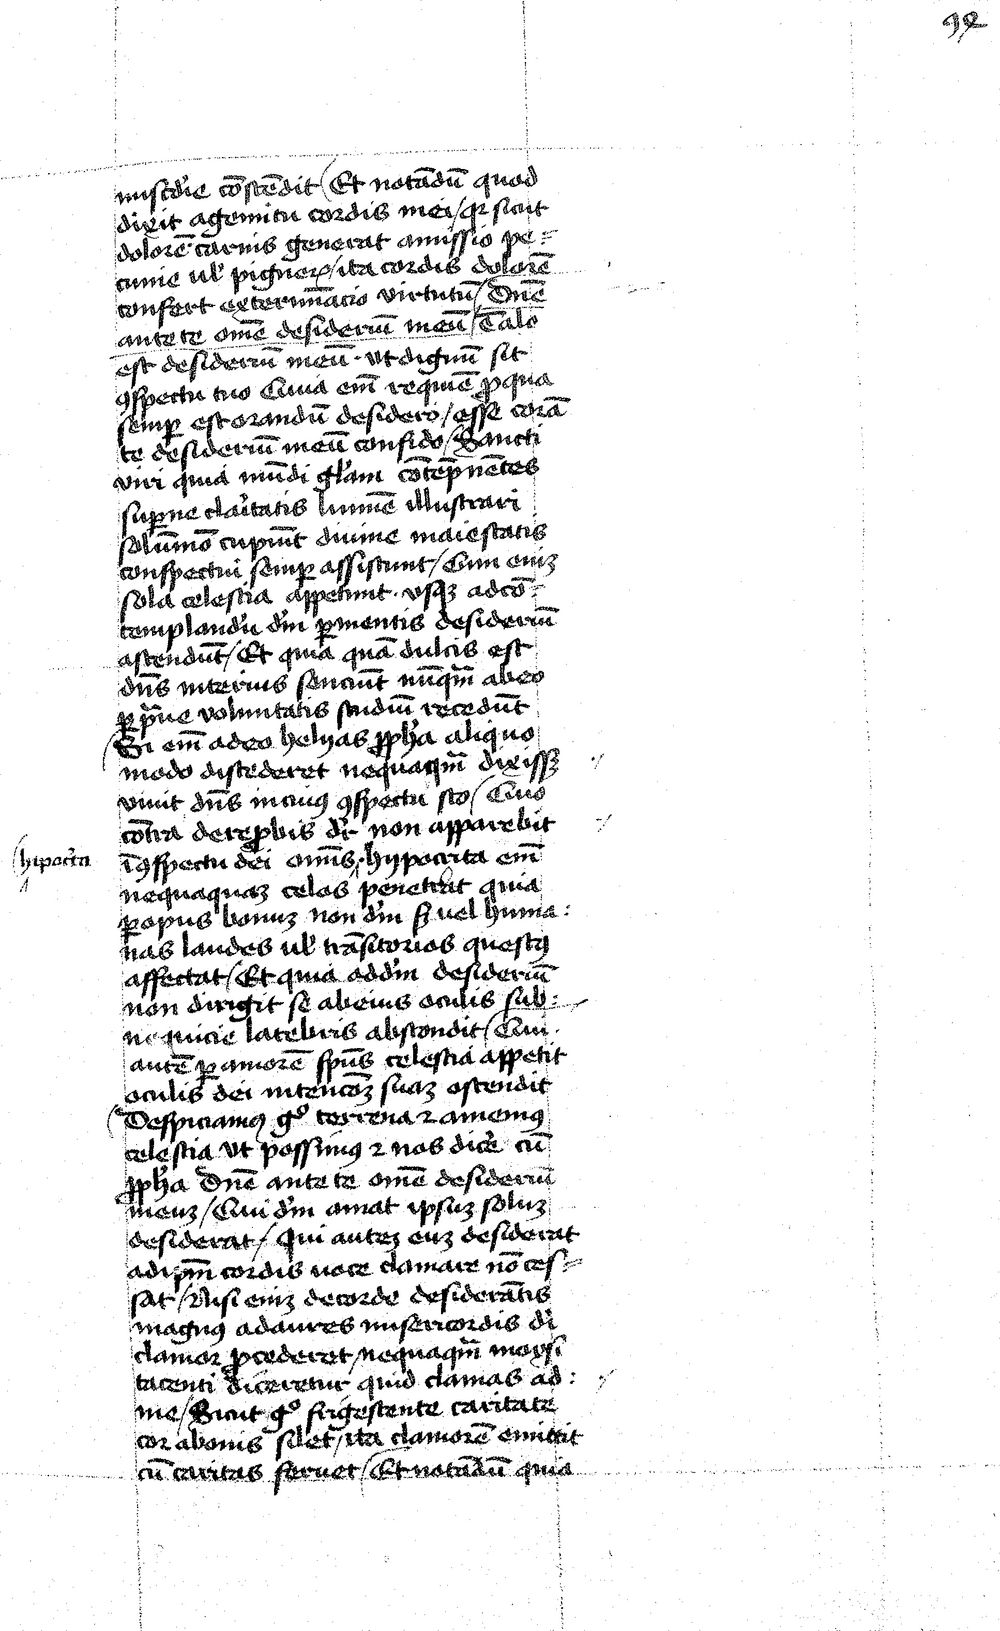 92
miscd'ie cōscēdit / Et notādū quod
dixit agemitu cordis mei / qr sicut
dolorē carnis generat amissio pe=
cunie ul' pigneꝝ / ita cordis dolorē
confert extermīacio virtutū / Dnē
ante te omē desideriū meū / Tale
est desideriū meū · ut dignū sit
ꝯspectu tuo Cuius em̄ requiē ꝓ qua
semꝑ est orandū desidero / esse corā
te desideriū meū confido / Sancti
viri quia mūdi gl'am cōtēpnētes
suꝑne clar'itatis lumīe illustrari
solūmō cupiūt diuine maiestatis
conspectui semꝑ assistunt / Cum eniꝫ
sola celestia appetunt · usqꝫ ad cō=
templandū dm̄ ꝑ mentis desideriū
ascendūt / Et quia quā dulcis est
dn̄s interius senciūt nūqm̄ ab eo
ꝑ praue voluntatis studiū recedūt
Si em̄ a deo helyas ꝓph'a aliquo
modo discederet nequaqm̄ dixissꝫ
viuit dn̄s in cuiꝰ ꝯspectu sto / Quo
cōtra de reꝓbis dr̄ non apparebit
ī ꝯspectu dei omīs · hypocrita em̄
hipoc'ta
nequaquaꝫ celos penetrat quia
ꝑ opus bonuꝫ non dm̄ sꝫ uel huma:
nas laudes ul' trāsitorios questꝰ
affectat / Et quia ad dm̄ desideriū
non dirigit se ab eius oculis sub:
nequicie latebris abscondit / Qui
autē ꝑ amorē sp̄us celestia appetit
oculis dei intencōꝫ suaꝫ ostendit
Despiciamꝰ gͦ terrena ⁊ amemꝰ
celestia ut possimꝰ ⁊ nos dic'e cū
ꝓph'a Dnē ante te omē desideriū
meuꝫ / Qui dm̄ amat ipsuꝫ soluꝫ
desiderat / Qui auteꝫ euꝫ desiderat
ad ipm̄ cordis uoce clamare nō ces=
sat / Nisi eniꝫ de corde desiderātis
magnꝰ ad aures misericordis di
clamor ꝓcederet / nequaqm̄ moysi
tacenti diceretur quid clamas ad:
me / Sicut gͦ frigescente caritate
cor a bonis silet / ita clamorē emittit
cū caritas feruet / Et notādū quia